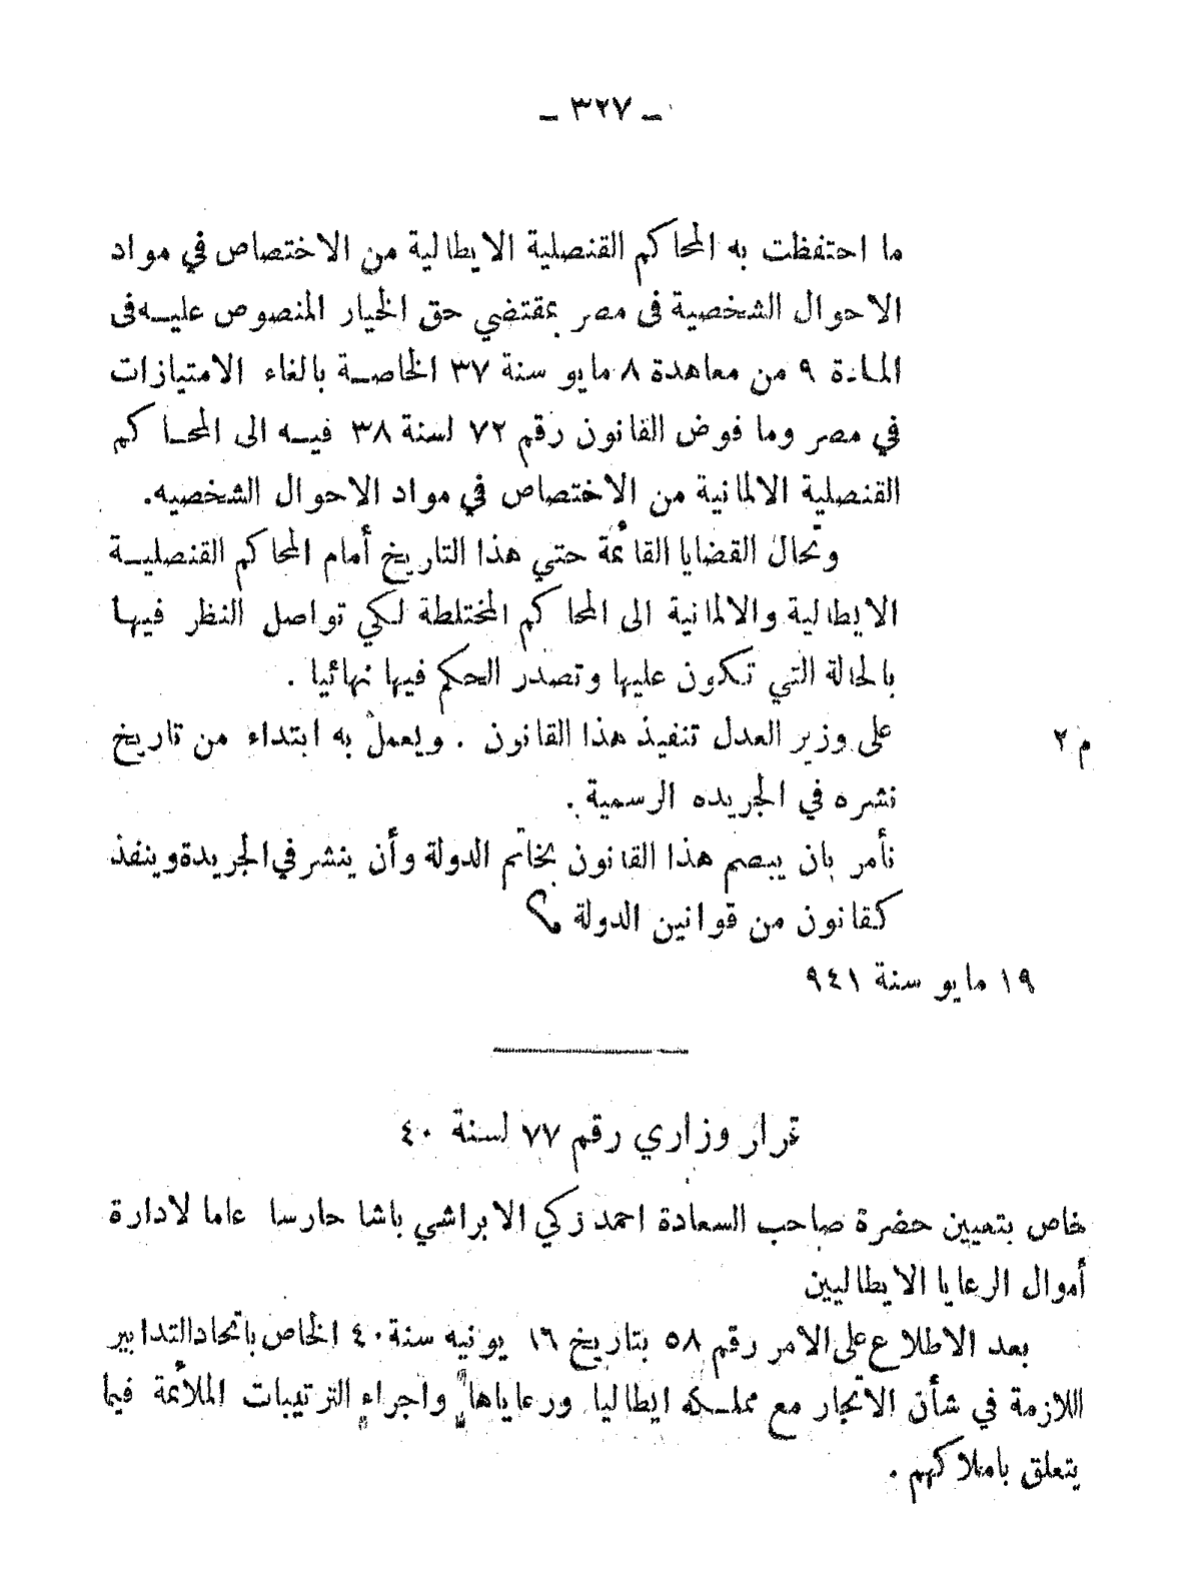 ـ ٣٢٧ ـ
ما احتفظت به المحاكم القنصلية الايطالية من الاختصاص في مواد
الاحوال الشخصية فى مصر بمقتضي حق الخيار المنصوص عليـه فى
المـادة ٩ من معاهدة ٨ مايو سنة ٣٧ الخاصـة بالغاء الامتيازات
في مصر وما فوض القانون رقم ٧٢ لسنة ٣٨ فيـه الى المحـاكم
القنصلية الالمانية من الاختصاص في مواد الاحوال الشخصيه.
وتحال القضايا القائمة حتي هذا التاريخ أمام المحاكم القنصليـة
الايطالية والالمانية الى المحاكم المختلطة لكي تواصل النظر فيهـا
بالحالة التي تكون عليها وتصدر الحكم فيها نهائيا .
م ٢ على وزير العدل تنفيذ هذا القانون . ويعمل به ابتداء من تاريخ
نشره في الجريده الرسمية .
نأمر بان يبصم هذا القانون بخاتم الدولة وأن ينشر في الجريدة وينفذ
كقانون من قوانين الدولة ؟
١٩ مايو سنة ٩٤١
قرار وزاري رقم ٧٧ لسنة ٤٠
خاص بتعيين حضرة صاحب السعادة احمد زكي الابراشي باشا حارسا عاما لادارة
أموال الرعايا الايطاليين
بعد الاطلاع على الامر رقم ٥٨ بتاريخ ١٦ يونيه سنة ٤٠ الخاص باتحاد التدابير
اللازمة في شأن الاتجار مع مملـكه ايطاليا ورعاياها واجراء الترتيبات الملائمة فيما
يتعلق باملاكهم .